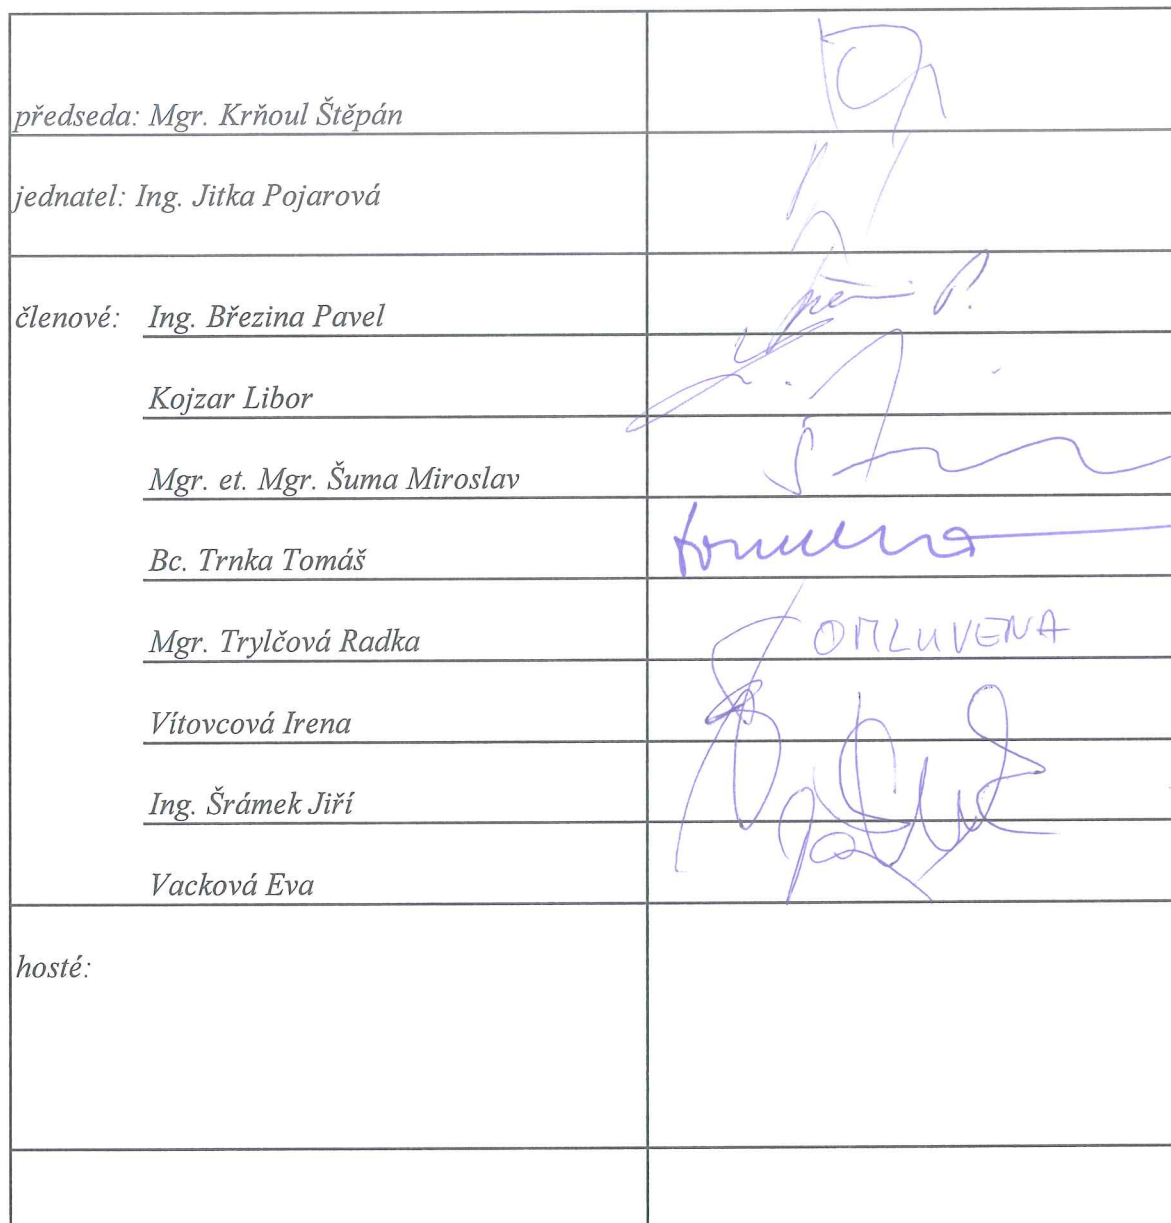 předseda: Mgr. Krňoul Štěpán
jednatel: Ing. Jitka Pojarová
členové: Ing. Březina Pavel
Kojzar Libor
Mgr. et. Mgr. Šuma Miroslav
Bc. Trnka Tomáš
Mgr. Trylčová Radka OMLUVENA
Vítovcová Irena
Ing. Šrámek Jiří
Vacková Eva
hosté: